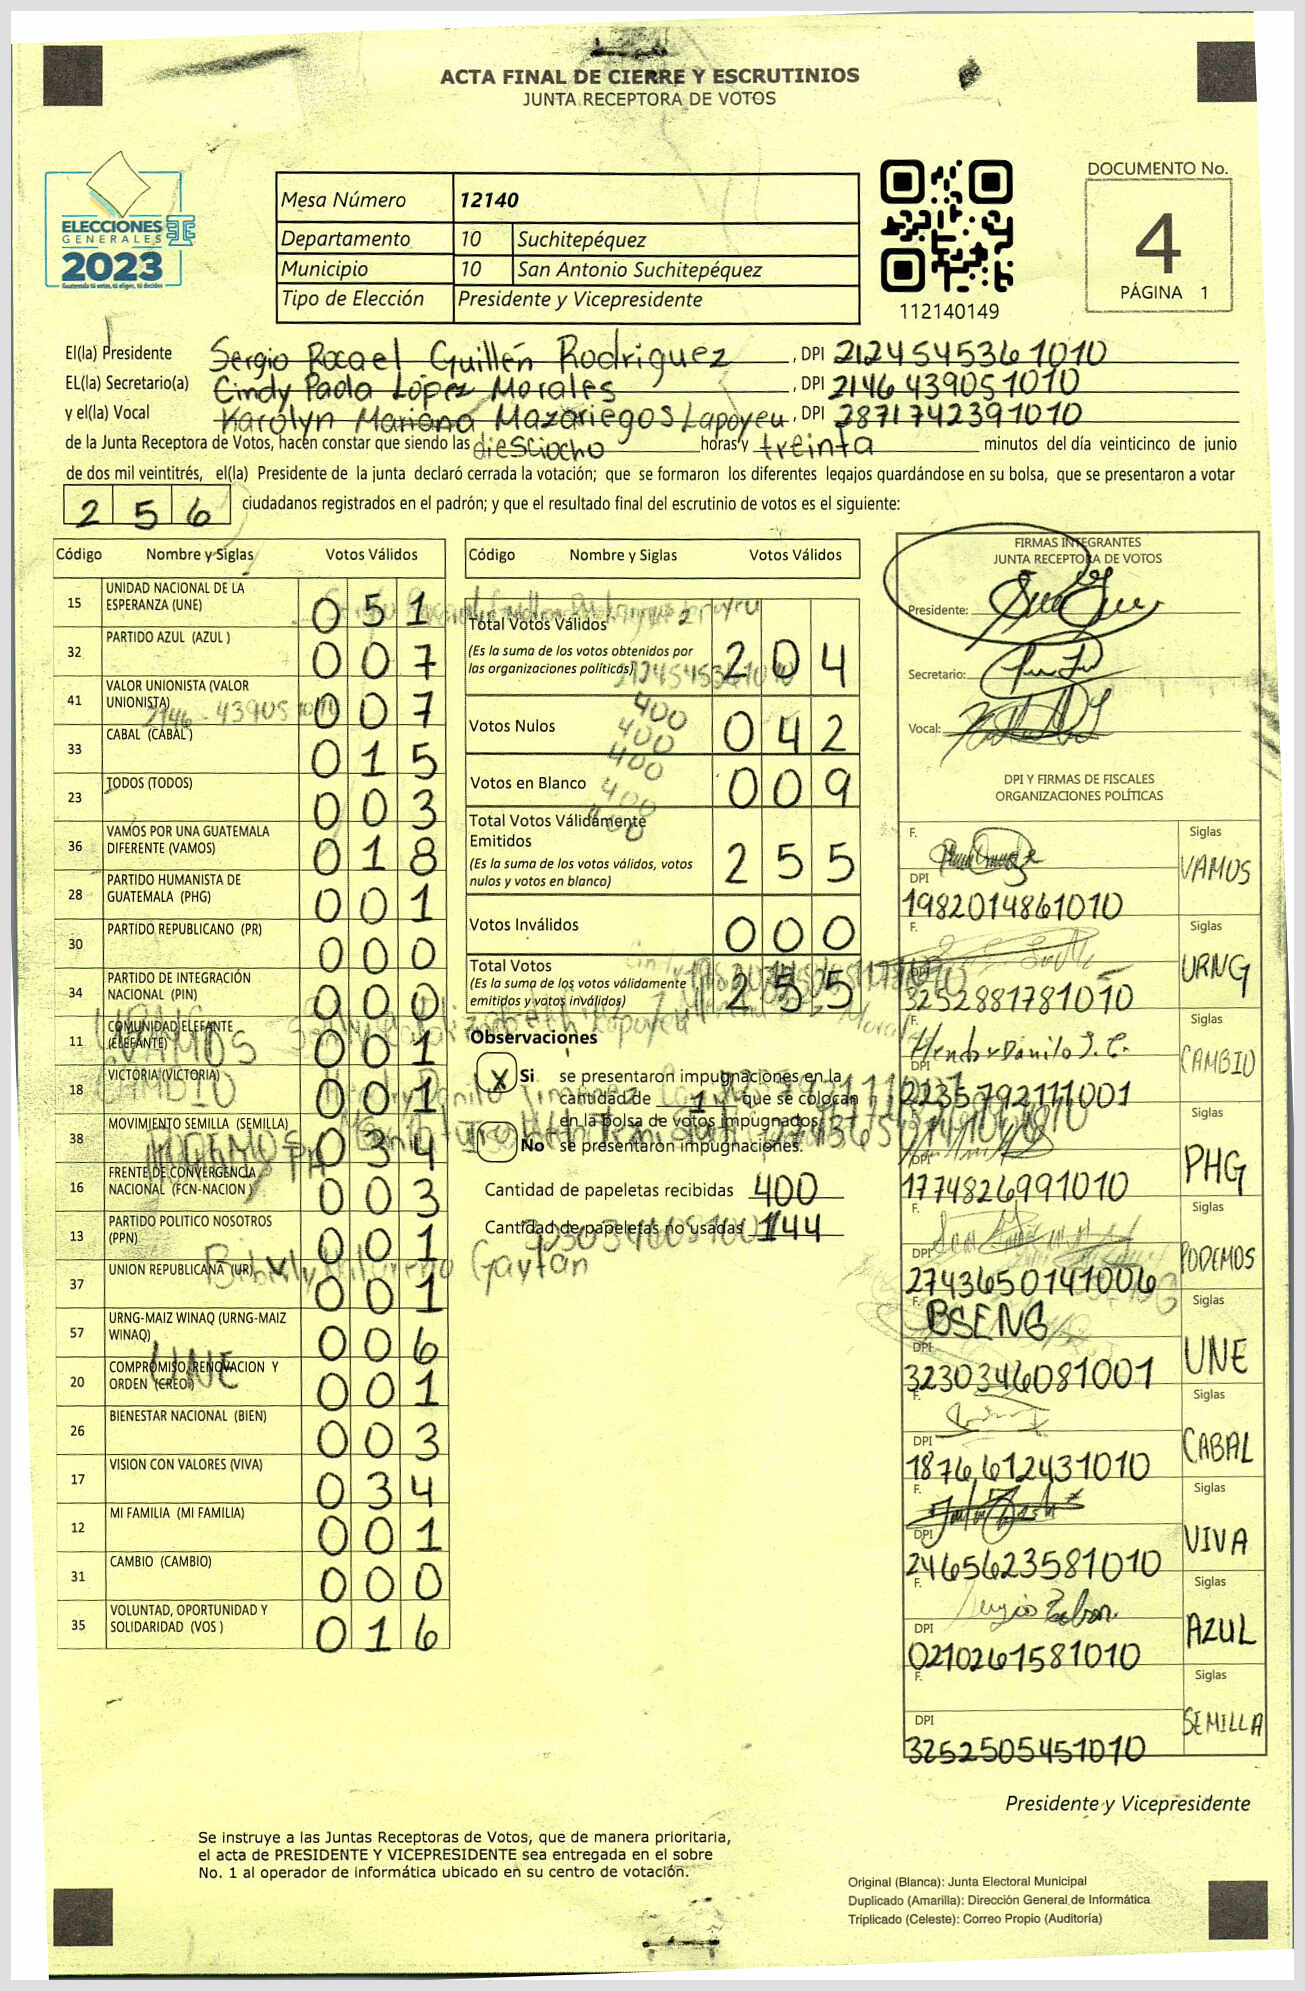 ACTA FINAL DE CIERRE Y ESCRUTINIOS
JUNTA RECEPTORA DE VOTOS
ELECCIONES
GENERALES
2023
Guatemala tú votas, tú eliges, tú decides
Mesa Número 12140
Departamento 10 Suchitepéquez
Municipio 10 San Antonio Suchitepéquez
Tipo de Elección Presidente y Vicepresidente
112140149
DOCUMENTO No.
4
PÁGINA 1
El(la) Presidente Sergio Rocael Guillén Rodriguez, DPI 2124545361010
EL(la) Secretario(a) Cindy Paola López Morales, DPI 2146439051010
y el(la) Vocal Karolyn Mariana Mazariegos Lapoyeu, DPI 2871742391010
de la Junta Receptora de Votos, hacen constar que siendo las diesciocho horas y treinta minutos del día veinticinco de junio
de dos mil veintitrés, el(la) Presidente de la junta declaró cerrada la votación; que se formaron los diferentes legajos quardándose en su bolsa, que se presentaron a votar
256 ciudadanos registrados en el padrón; y que el resultado final del escrutinio de votos es el siguiente:
Código Nombre y Siglas Votos Válidos
15 UNIDAD NACIONAL DE LA ESPERANZA (UNE) 051
32 PARTIDO AZUL (AZUL ) 007
41 VALOR UNIONISTA (VALOR UNIONISTA) 007
33 CABAL (CABAL ) 015
23 TODOS (TODOS) 003
36 VAMOS POR UNA GUATEMALA DIFERENTE (VAMOS) 018
28 PARTIDO HUMANISTA DE GUATEMALA (PHG) 001
30 PARTIDO REPUBLICANO (PR) 000
34 PARTIDO DE INTEGRACIÓN NACIONAL (PIN) 000
11 COMUNIDAD ELEFANTE (ELEFANTE) 001
18 VICTORIA (VICTORIA) 001
38 MOVIMIENTO SEMILLA (SEMILLA) 034
16 FRENTE DE CONVERGENCIA NACIONAL (FCN-NACION ) 003
13 PARTIDO POLITICO NOSOTROS (PPN) 001
37 UNION REPUBLICANA (UR) 001
57 URNG-MAIZ WINAQ (URNG-MAIZ WINAQ) 006
20 COMPROMISO, RENOVACION Y ORDEN (CREO) 001
26 BIENESTAR NACIONAL (BIEN) 003
17 VISION CON VALORES (VIVA) 034
12 MI FAMILIA (MI FAMILIA) 001
31 CAMBIO (CAMBIO) 000
35 VOLUNTAD, OPORTUNIDAD Y SOLIDARIDAD (VOS ) 016
Código Nombre y Siglas Votos Válidos
Total Votos Válidos 204
(Es la suma de los votos obtenidos por
las organizaciones políticas)
2124545361010
2146 - 43905 1010
400
400
400
400
400
Votos Nulos 042
Votos en Blanco 009
Total Votos Válidamente
Emitidos 255
(Es la suma de los votos válidos, votos
nulos y votos en blanco)
Votos Inválidos 000
Total Votos 255
(Es la suma de los votos válidamente
emitidos y votos inválidos)
Observaciones
X Si se presentaron impugnaciones en la
cantidad de 1 que se colocan
en la bolsa de votos impugnados.
No se presentaron impugnaciones.
Cantidad de papeletas recibidas 400
Cantidad de papeletas no usadas 144
VAMOS
CAMBIO
PODEMOS
Gaytan
UNE
FIRMAS INTEGRANTES
JUNTA RECEPTORA DE VOTOS
Presidente:
Secretario:
Vocal:
DPI Y FIRMAS DE FISCALES
ORGANIZACIONES POLÍTICAS
F. Siglas VAMOS
DPI 1982014861010
F. Siglas URNG
DPI 3252881781010
F. Hendry Danilo J. C. Siglas CAMBIO
DPI 2235792111001
Siglas PHG
DPI 1774826991010
F. Siglas PODEMOS
DPI 2743650141006
F. BSENG Siglas UNE
DPI 3230346081001
F. Siglas CABAL
DPI 1876612431010
F. Siglas VIVA
DPI 2465623581010
F. Sergio Siglas AZUL
DPI 0210261581010
F. Siglas SEMILLA
DPI 3252505451010
Presidente y Vicepresidente
Se instruye a las Juntas Receptoras de Votos, que de manera prioritaria,
el acta de PRESIDENTE Y VICEPRESIDENTE sea entregada en el sobre
No. 1 al operador de informática ubicado en su centro de votación.
Original (Blanca): Junta Electoral Municipal
Duplicado (Amarilla): Dirección General de Informática
Triplicado (Celeste): Correo Propio (Auditoría)